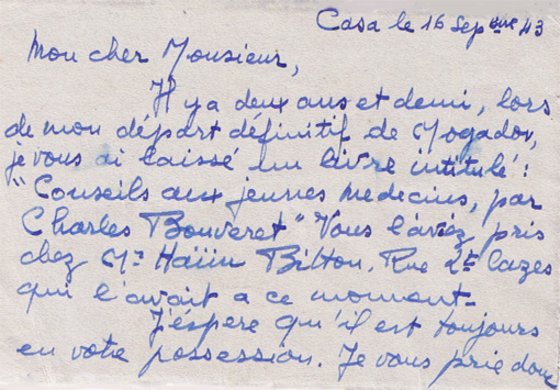 Casa le 16 Sepbre 43
Mon cher Monsieur,
Il y a deux ans et demi, lors
de mon départ définitif de Mogador,
je vous ai laissé un livre intitulé :
"Conseils aux jeunes medecins, par
Charles Bouveret" Vous l'aviez pris
chez Mr Haïm Bitton, Rue Lt Cazes
qui l'avait a ce moment-
J'éspere qu'il est toujours
en votre possession. Je vous prie donc